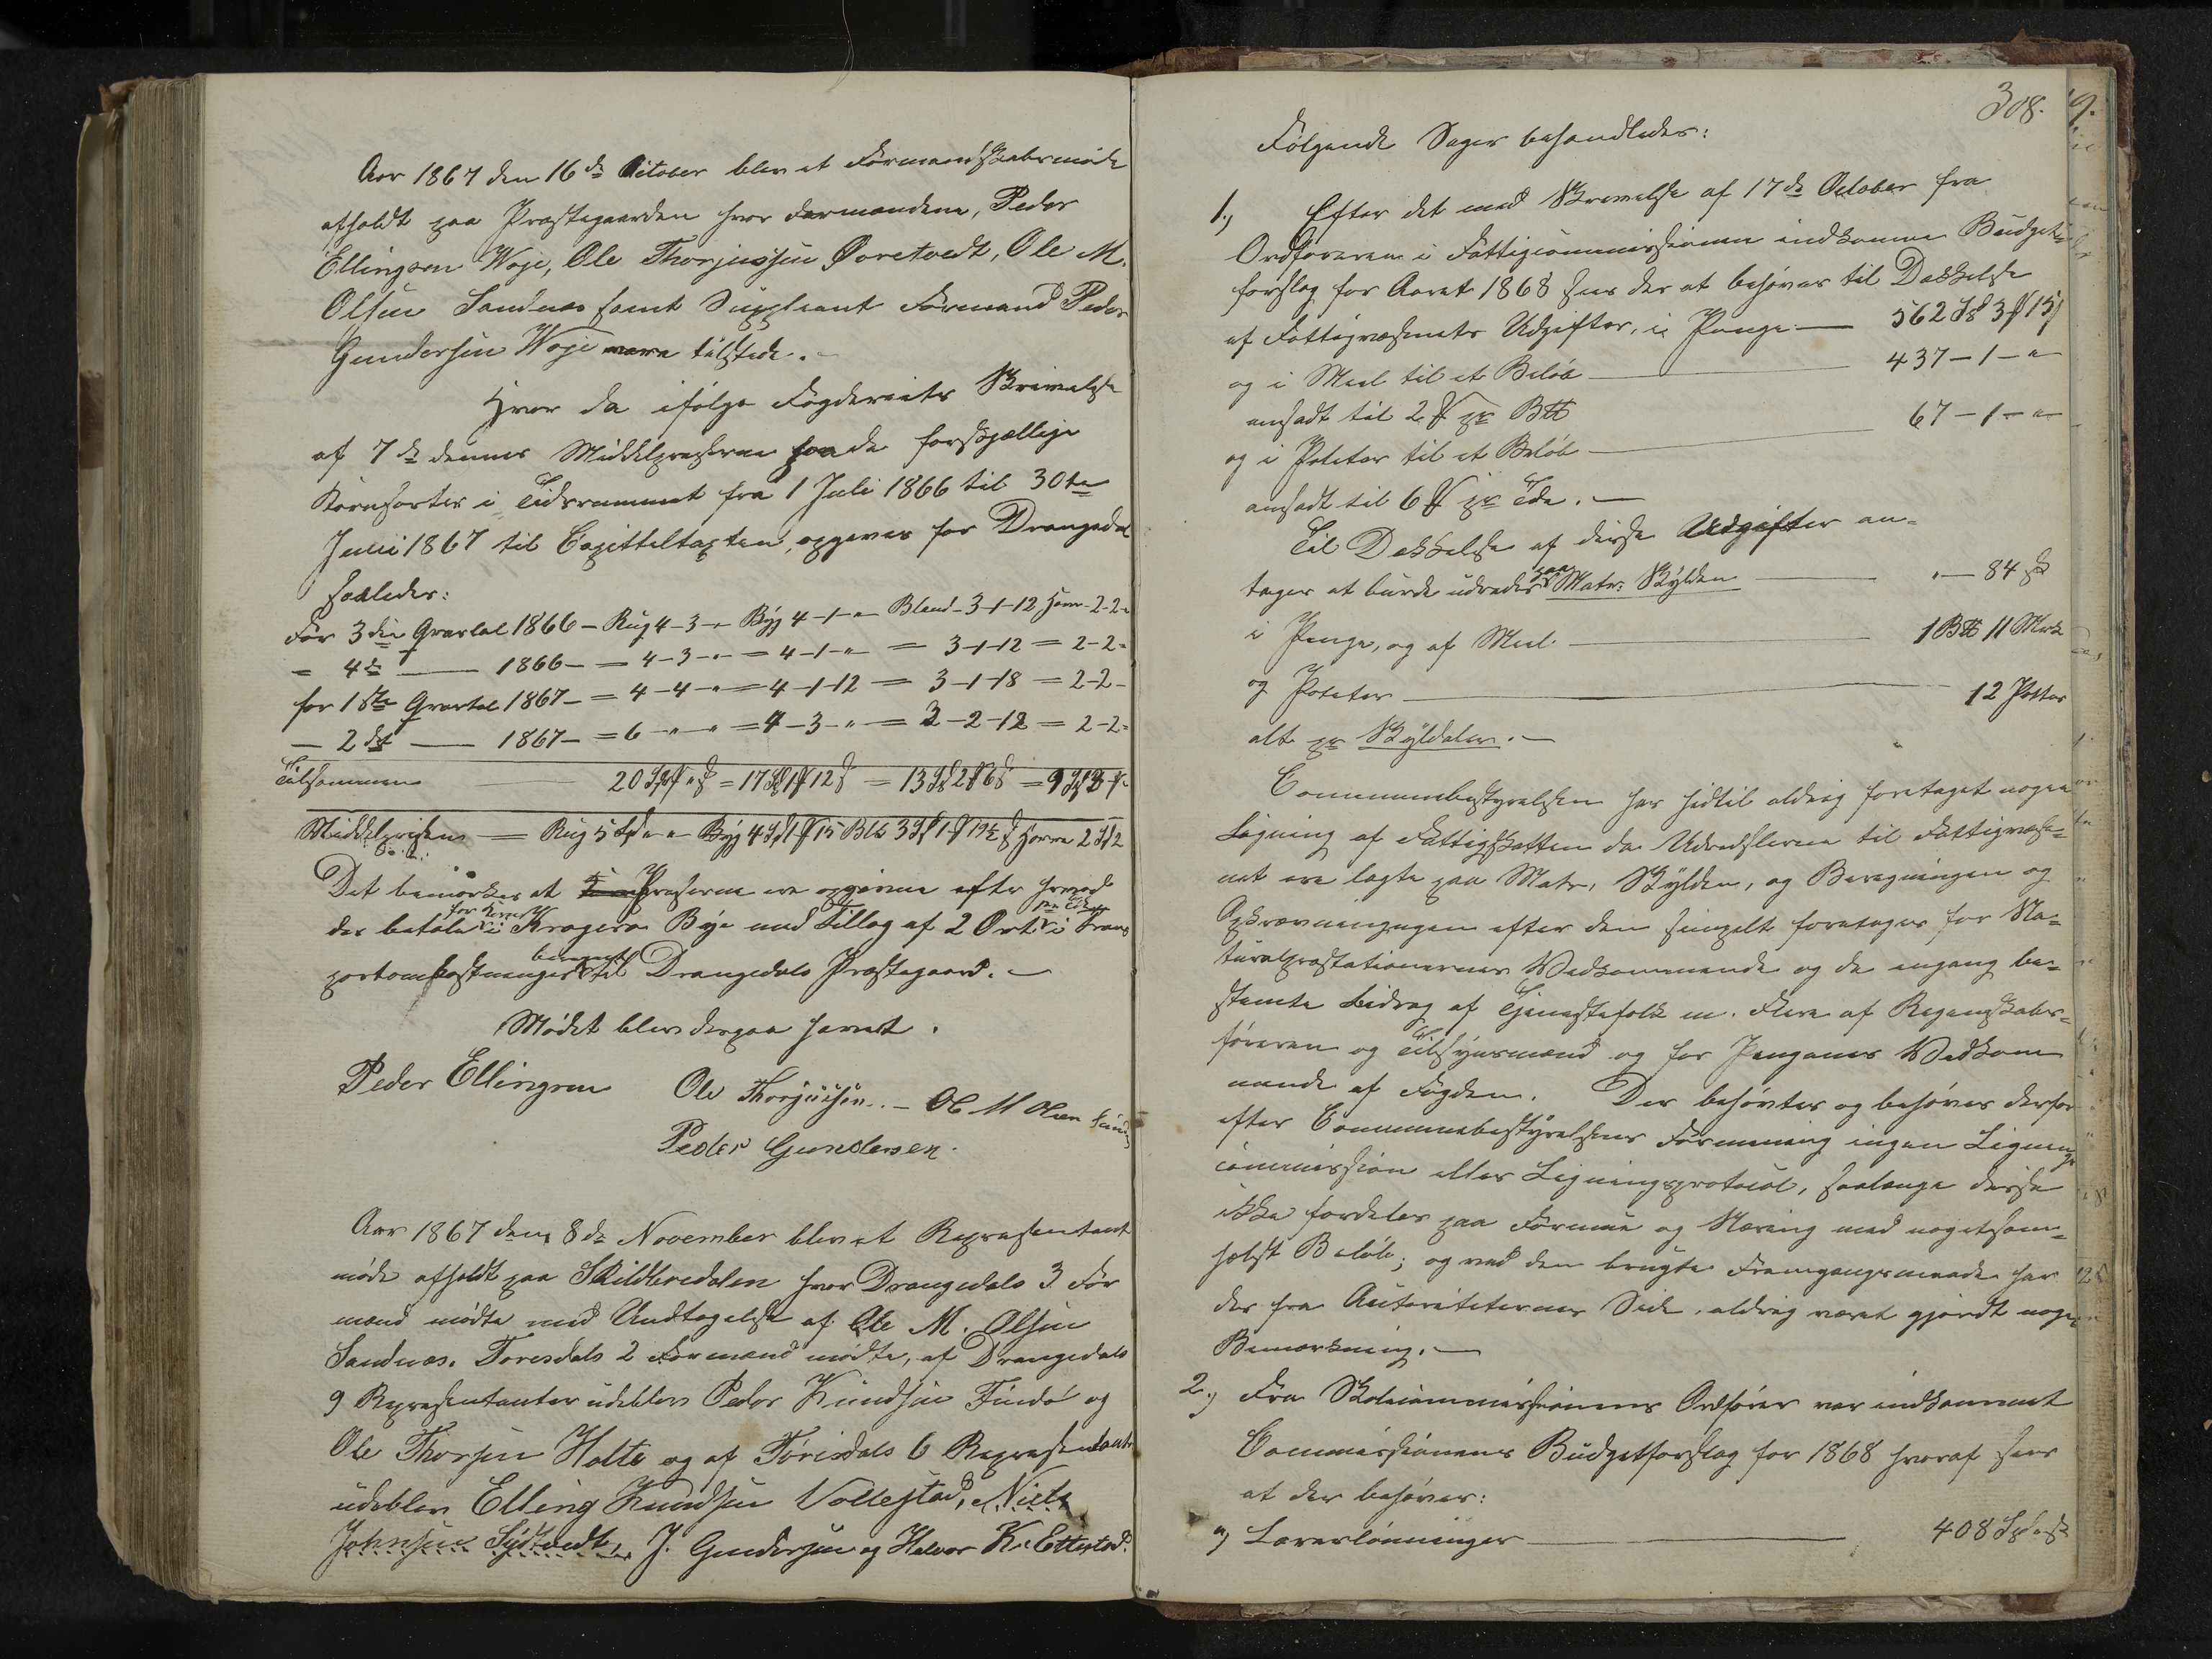 Aar 1867 den 16de October blev et Formandskabsmøde
afholdt paa Præstegaarden hvor Formændene, Peder
Ellingsen Woje, Ole Thorjussen Øvretvedt, Ole M.
Olsen Sandnæs samt Suppleant Formand Peder
Gundersen Woje vare tilstede.
Hvor da ifølge Fogderiets Skrivelse
af 7de dennes Middelpriserne paa de forskjællige
Kornsorter i Tidsrummet fra 1 Juli 1866 til 30te
Juni 1867 til Capitteltaxten, opgives for Drangedal
saaledes:
For 3die Qvartal 1866 – Rug 4-3-" Byg 4-1-" Bland-3-1-12 Havre-2-2-"
= 4de — 1866 – = 4-3-" = 4-1-" = 3-1-12 = 2-2-
for 1ste Qvartal 1867 – = 4-4-" = 4-1-12 = 3-1-18 = 2-2-
— 2det — 1867 – = 6-"-" = 4-3-" = 3-2-12 = 2-2-
Tilsammen 20 = 17 1 12 = 13 2 6 = 9 3
Middelprisen — Rug 5 Byg 4 1 15 Bld 3 1 19½ Havre 2 2
Det bemærkes at Priserne ere opgivne efter hvad
der betales for Kornet i Kragerø Bye med Tillæg af 2 Ort pr Tde i Trans
portomkostninger beregnet til Drangedals Præstegaard. —
Mødet blev derpaa hævet.
Peder Ellingsen Ole Thorjussen. – Ol M Olsen Sandn
Peder Gundersen.
Aar 1867 den 8de November blev et Repræsentant
møde afholdt paa Skilbredalen hvor Drangedals 3 For
mænd mødte med Undtagelse af Ole M. Olsen
Sandnæs. Tørisdals 2 Formænd mødte, af Drangedals
9 Repræsentanter udeblev Peder Knudsen Findø og
Ole Thorsen Holte og af Tørisdals 6 Repræsentant
udeblev Elling Knudsen Vollestad, Niels
Johnsen Sydtvedt, J. Gundersen og Halvor K. Ettestad.
308.
Følgende Sager behandledes:
1.) Efter det med Skrivelse af 17de October fra
Ordføreren i Fattigcommissionen indkomne Budget=
forslag for Aaret 1868 sees der at behøves til Dækkelse
af Fattigvæsenets Udgifter, i Penge — 562 3 15
og i Meel til et Beløb — 437 – 1 – "
ansadt til 2 pr B
og i Poteter til et Beløb — 67 – 1 – "
ansadt til 6 pr Tde. —
Til Dækkelse af disse Udgifter an=
tages at burde udredes paa Matr: Skylden — " – 84 sk
i Penge, og af Meel — 1 B 11 Mrk
og Poteter — 12 Potter
alt pr Skyldaler. —
Communebestyrelsen har hidtil aldrig foretaget nogen
Ligning af Fattigskatten da Udredslerne til Fattigvæse=
net ere lagte paa Matr. Skylden, og Beregningen og
Opkrævningen efter den simpelt foretages for Na=
turalpræstationernes Vedkommende og de engang be=
stemte Bidrag af Tjenestefolk m. Flere af Regnskabs=
føreren og Tilsynsmænd og for Pengenes Vedkom
mende af Fogden. Der behøvtes og behøves derfor
efter Communebestyrelsens Formening ingen Lignings
commission eller Ligningsprotocol, saalænge disse
ikke fordeles paa Formue og Næring med nogetsom=
helst Beløb; og ved den brugte Fremgangsmaade har
der fra Autoriteternes Side, aldrig været gjordt nogen
Bemærkning. —
2.) Fra Skolecommissionens Ordfører var indkommet
Commissionens Budgetforslag for 1868 hvoraf sees
at der behøves:
a) Lærerlønninger — 408 Spd " sk